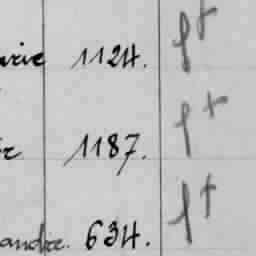 arie 1124. f+
r 1187. f+
andre. 634. f+